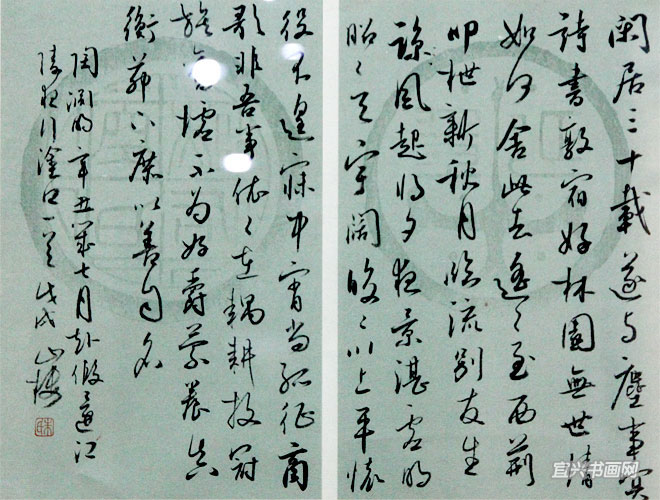 閑居三十載遂与塵事冥
詩書敦宿好林園無世情
如何舍此去遥〻至西荆
叩枻新秋月臨流别友生
涼風起将夕夜景湛虚明
昭〻天宇闊皎〻川上平懷
役不遑寐中宵尚孤征商
歌非吾事依〻在耦耕投冠
旋舊墟不为好爵縈養真
衡茆下庶以善自名
陶渊明辛丑歲七月赴假還江
陵夜行塗口一首 戊戌
宜兴书画网